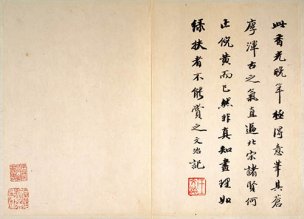 此香光晚年極得意筆其蒼
厚渾古之氣直逼北宋諸賢何
止倪黃而已然非真知畫理如
綠扶者不能賞之文治記